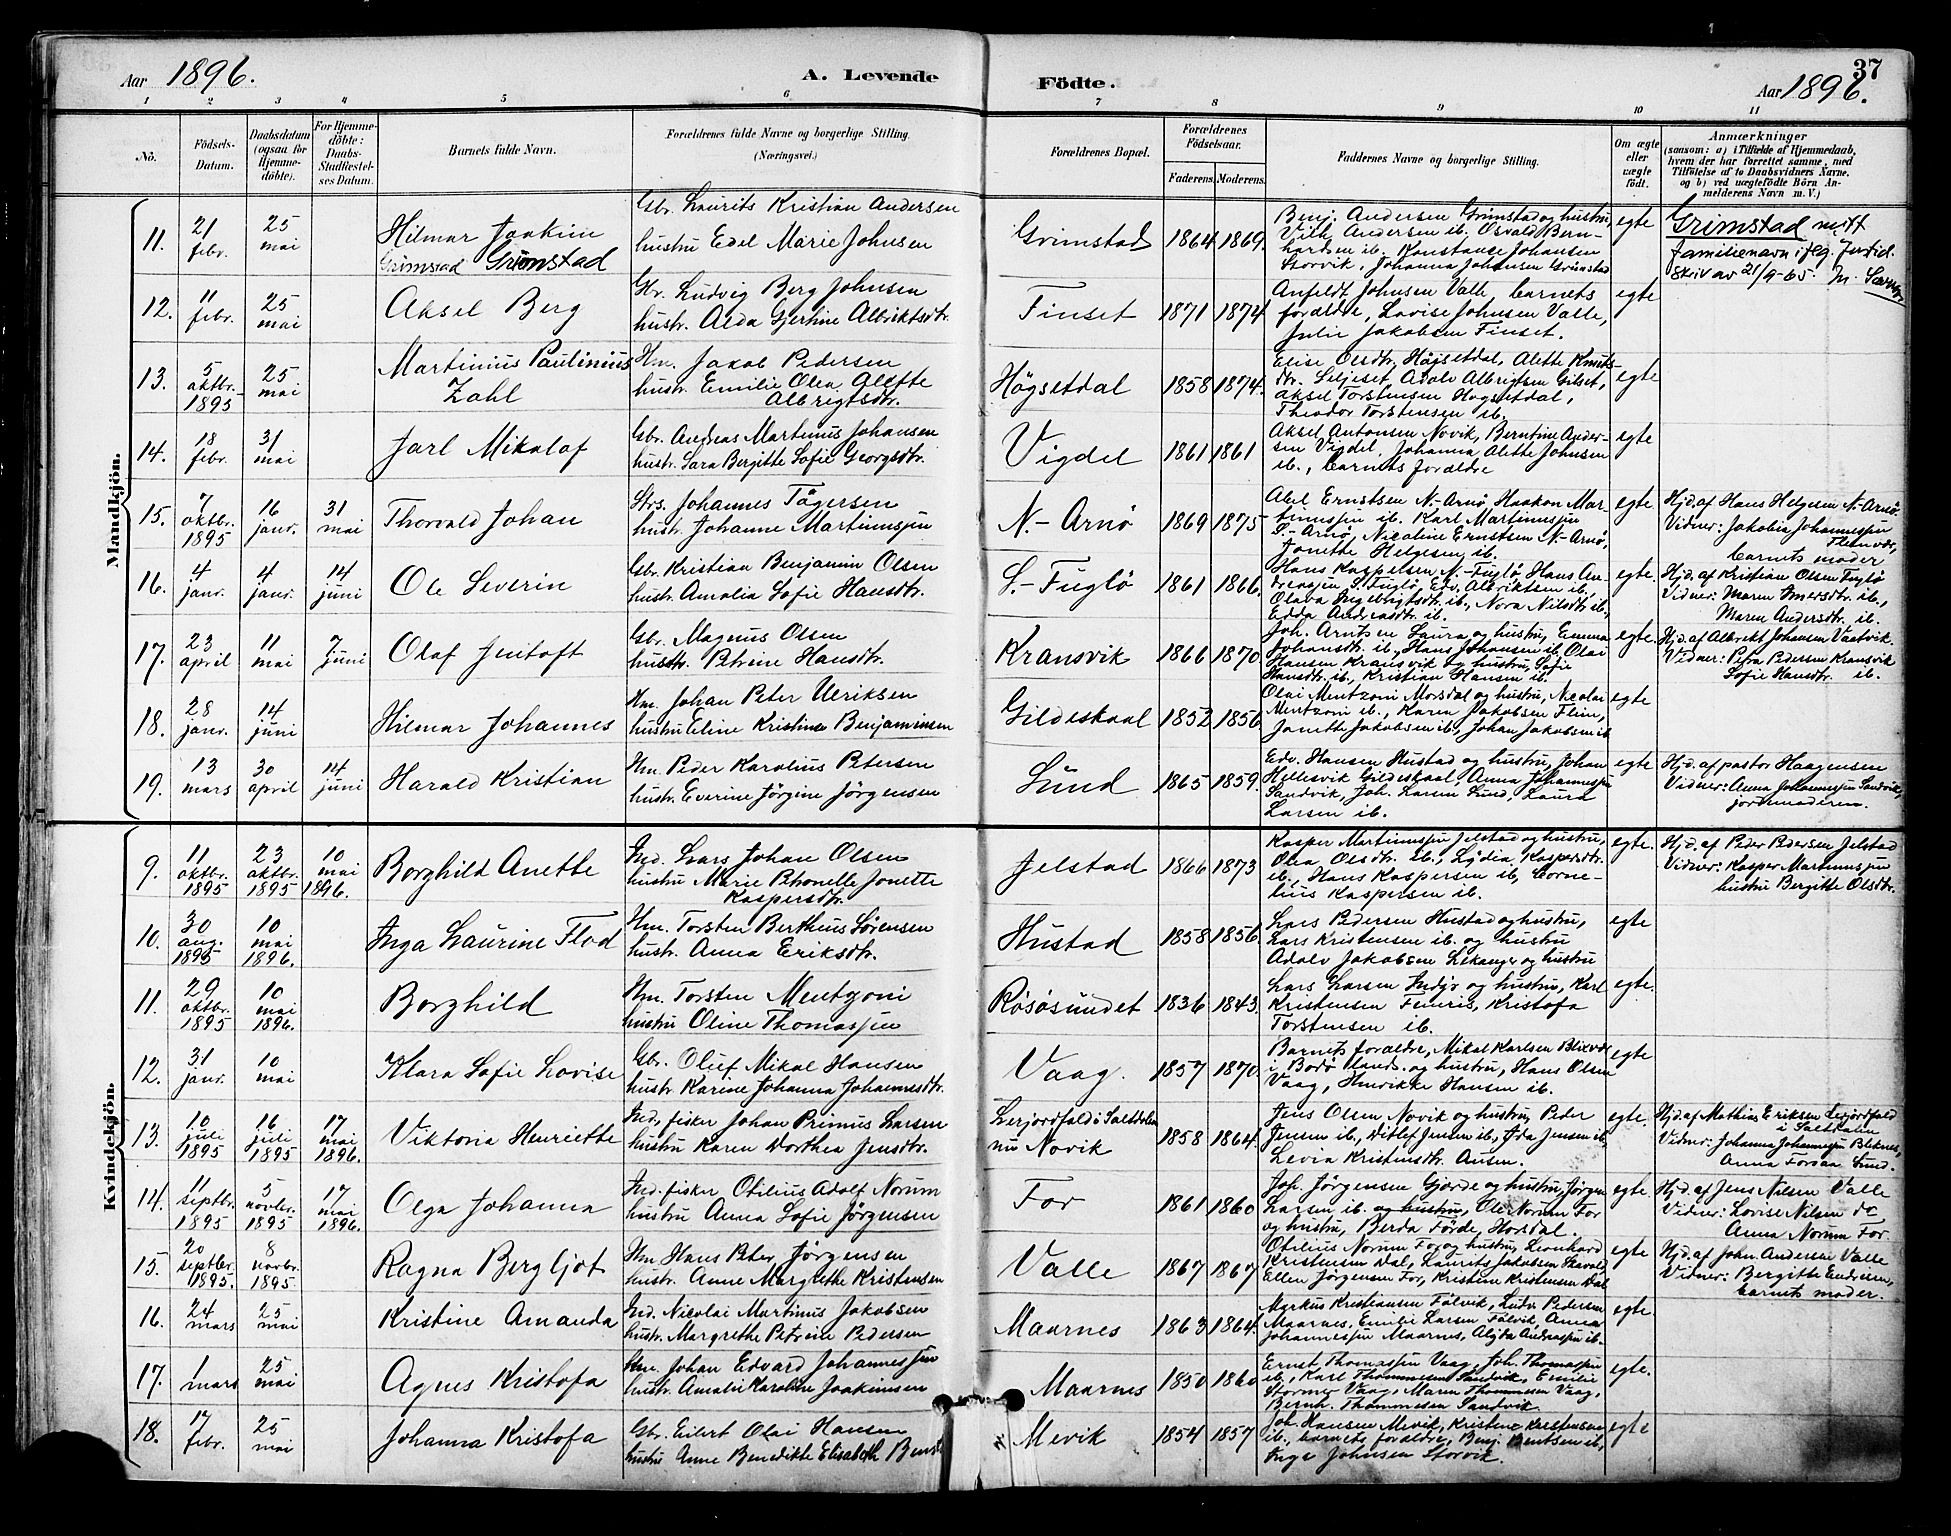 37
Aar 1896. A. Levende Födte. Aar 1896.
1 2 3 4 5 6 7 8 9 10 11
No. Födsels-Datum. Daabsdatum (ogsaa for Hjemme-döbte). For Hjemme-döbte: Daabs-Stadfæstel-ses Datum. Barnets fulde Navn. Forældrenes fulde Navne og borgerlige Stilling. (Næringsvei.) Forældrenes Bopæl. Forældrenes Födselsaar. Faderens. Moderens. Faddernes Navne og borgerlige Stilling. Om ægte eller uægte födt. Anmærkninger (saasom: a) i Tilfælde af Hjemmedaab, hvem der har forrettet samme, med Tilföielse af to Daabsvidners Navne, og b) ved uægtefödte Börn An-melderens Navn m. V.)
Mandkjön.
11. 21 febr. 25 mai Hilmar Joakim Grimstad Grimstad
Gbr. Laurits Kristian Andersen
hustru Edel Marie Johnsen
Grimstad 1864 1869.
Benj. Andersen Grimstad og hustru,
Vilh. Andersen ib. Osvald Bern-
hardsen ib., Konstanse Johansen
Storvik, Johanna Johansen Grimstad
egte
Grimstad nytt
familienavn iflg. Justid.
skriv av 21/9-65.
12. 11 febr. 25 mai Aksel Berg
Gbr. Ludvig Berg Johnsen
hustr. Alda Gjertine Albriktsdtr.
Finset 1871 1874
Anfeldt Johnsen Valle barnets
forældre, Lovise Johnsen Valle,
Julie Jakobsen Finset.
egte
13. 5 oktbr. 1895 25 mai Martinius Paulinius Zahl
Hm. Jakob Pedersen
hustr. Emilie Olea Alette
Albrigtsdtr.
Högsetdal 1858 1874.
Elise Olsdtr. Högsetdal, Alette Knuts-
dtr. Seljeset, Adolv Albrigtsen Gilset,
Aksel Torstensen Hogsetdal,
Theodor Torstensen ib.
egte
14. 18 febr. 31 mai Jarl Mikalaf
Gbr. Andreas Martinus Johansen
hustr. Sara Bergitte Sofie Georgsdtr.
Vigdel 1861 1861
Aksel Antonsen Novik, Berntine Ander-
sen Vigdel, Johanna Alette Johnsen
ib., barnets forældre
egte
15. 7 oktbr. 1895 16 janr. 31 mai Thorvald Johan
Strs. Johannes Tögersen
hustr. Johanne Martinussen
N.-Arnö 1869 1875
Abel Ernstsen N.-Arnö, Haakon Mar-
tinussen ib. Karl Martinussen
S.-Arnö, Nicoline Ernstsen N.-Arnö,
Janette Helgesen ib.
egte
Hjd. af Hans Helgesen N.-Arnö.
Vidner: Jakobia Johannessen
Fleinvær,
barnets moder
16. 4 janr. 4 janr. 14 juni Ole Severin
Gbr. Kristian Benjamin Olsen
hustr. Amalia Sofie Hansdtr.
S.-Fuglö 1861 1866.
Hans Kaspersen N.-Fuglö, Hans An-
dreassen S.Fuglö, Edv. Albriktsen ib.,
Olava Ingebrigtsdtr. ib., Nora Nilsdtr. ib.,
Edda Andreasdtr. ib.
egte.
Hjd. af Kristian Olsen Fuglö
Vidner: Maren ib.,
Maren Andersdtr. ib.
17. 23 april 11 mai 7 juni Olaf Jentoft
Gbr. Magnus Olsen
hustr. Petrine Hansdtr.
Kransvik 1866 1870
Joh. Arntsen Laura og hustru, Emma
Johansdtr. ib., Hans Johansen ib. Olai
Hansen Kransvik og hustru, Sofie
Hansdtr. ib., Kristian Hansen ib.
egte.
Hjd. af Albrikt Johansen Vaatvik
Vidner: Petra Pedersen Kransvik
Sofie Hansdtr. ib.
18. 28 janr. 14 juni Hilmar Johannes
Hm. Johan Peter Ulriksen
hustru Eline Kristine Benjaminsen
Gildeskaal 1852 1856
Olai Mentzoni Morsdal og hustru, Nicolai
Mentzoni ib., Karen Jakobsen Flein,
Janette Jakobsen ib., Johan Jakobsen ib
egte
19. 13 mars 30 april 14 juni Harald Kristian
Hm. Peder Karolius Petersen
hustr. Everine Jörgine Jörgensen
Sund 1865 1859.
Edv. Hansen Hustad og hustru, Johan
Hellesvik Gildeskaal, Anna Johannessen
Sandvik, Joh. Larsen Sund, Laura
Larsen ib.
egte
Hjd. af pastor Haagensen
Vidner: Anna Johannessen Sandvik,
jordemoderen.
Kvindekjön.
9. 11 oktbr. 1895 23 oktbr. 1895 10 mai 1896. Borghild Anette
Ind. Lars Johan Olsen
hustru Marie Petronelle Jonette
Kaspersdtr.
Jelstad 1866 1873
Kasper Martinussen Jelstad og hustru,
Olea Olsdtr. ib., Lydia Kaspersdtr.
ib., Hans Kaspersen ib, Corne-
lius Kaspersen ib.
egte.
Hjd. af Peder Pedersen Jelstad
Vidner: Kasper Martinussen
hustru Bergitte Olsdtr.
10. 30 aug. 1895 10 mai 1896. Inga Laurine Flod
Hm. Torsten Bertheus Sörensen
hustr. Anna Eriksdtr.
Hustad 1858 1856
Lars Pedersen Hustad og hustru,
Lars Kristensen ib. og hustru
Adolv Jakobsen Lekanger og hustru
egte
11. 29 oktbr. 1895 10 mai 1896. Borghild
Hm. Torsten Mentzoni
hustru Oline Thomassen
Rösösundet 1836 1843.
Lars Larsen Indyr og hustru, Karl
Kristensen Fenris, Kristofa
Torstensen ib.
egte.
12. 31 janr. 10 mai Klara Sofie Lovise
Gbr. Oluf Mikal Hansen
hustr. Karine Johanna Johannesdtr.
Vaag. 1857 1870.
Barnets forældre, Mikal Karlsen Blixvær
i Bodö Lands. og hustru, Hans Olsen
Vaag, Henrikke Hansen ib.
egte
13. 10 juli 1895 16 juli 1895 17 mai 1896. Viktoria Henriette
Ind., fisker Johan Primus Larsen
hustru Karen Dorthea Jensdtr.
Lerjordfald i Saltdalen
nu Novik 1858 1864.
Jens Olsen Novik og hustru, Peder
Jensen ib., Ditlef Jensen ib., Ida Jensen ib.,
Levia Kristensdtr. Ausen.
egte.
Hjd. af Mathias Eriksen Lerjordfald
i Saltdalen
Vidner: Johanna Johannessen Bleknes,
Anna Forsaa Sund.
14. 11 septbr. 1895 5 novbr. 1895 17 mai 1896. Olga Johanna
Ind. fisker Otilius Adolf Norum
hustru Anna Sofie Jörgensen
For 1861 1860
Joh. Jörgensen Gjærde og hustru, Jörgen
Larsen ib. og hustru, Ole Norum For
og hustru, Berda Förde, Horsdal.
egte.
Hjd. af Jens Nilsen Valle
Vidner: Lovise Nilsen do
Anna Norum For.
15. 20 septbr. 1895. 8 novbr. 1895 Ragna Bergljot
Hm. Hans Peter Jörgensen
hustr. Anne Margrethe Kristensen
Valle 1867 1867
Otilius Norum For og hustru, Leonhard
Kristensen Dal, Laurits Jakobsen Skavold,
Ellen Jörgensen For, Kristine Kristensen Dal
egte
Hjd. af John Andersen Valle
Vidner: Bergitte Endresen,
barnets moder.
16. 24 mars 25 mai Kristine Amanda
Ind. Nicolai Martinus Jakobsen
hustr. Margrethe Petrine Pedersen
Maarnes 1863 1864.
Markus Kristiansen Fölvik, Ludv. Pedersen
Maarnes, Emilie Larsen Fölvik, Anna
Johannessen Maarnes, Andreassen ib.
egte.
17. 1 mars 25 mai Agnes Kristofa
Hm. Johan Edvard Johannessen
hustr. Amalie Karoline Joakimsen
Maarnes 1850 1860
Ernst Thomassen Vaag, Joh. Thomassen
ib., Karl Thommesen Sandvik, Emilie
Stormer Vaag, Maren Thommesen Vaag,
Bernh. Thommesen Sandvik.
egte.
18. 17 febr. 25 mai Johanna Kristofa
Gbr. Eilert Olai Hansen
hustru Anne Benedikte Elisabeth
Mevik 1854 1857
Joh. Hansen Mevik, Kristine Kristensen
ib., barnets forældre, Benj. Berntsen ib.,
Inga Johnsen Storvik.
egte